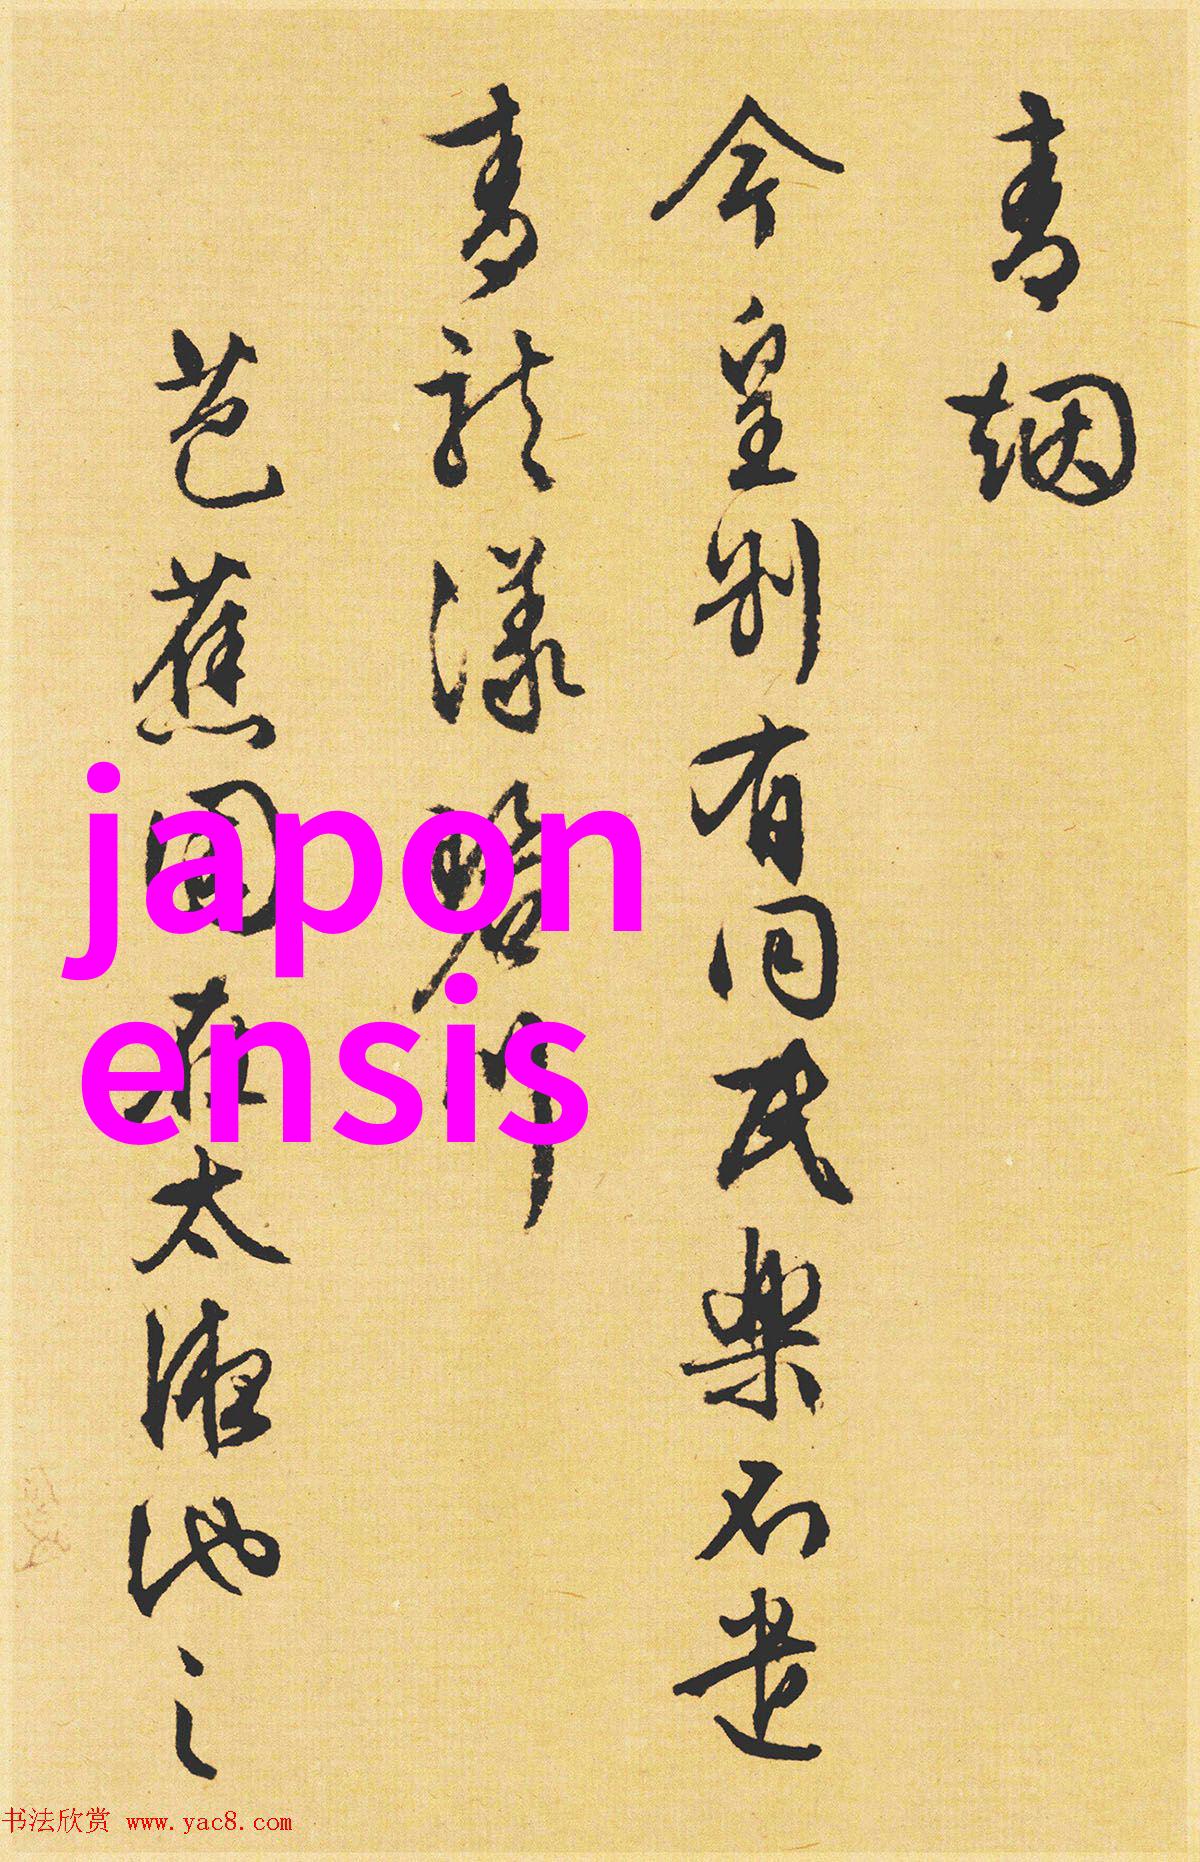 青烟
今皇别有同民樂不遣
青龍漾
芭蕉園在太液池之
japon
ensis
书法欣赏 www.yac8.com